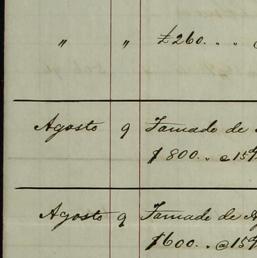 " " £260.. "
Agosto 9 Tamado de
$800.. @ 15
Agosto 9 Tamado de
$600.. @ 15